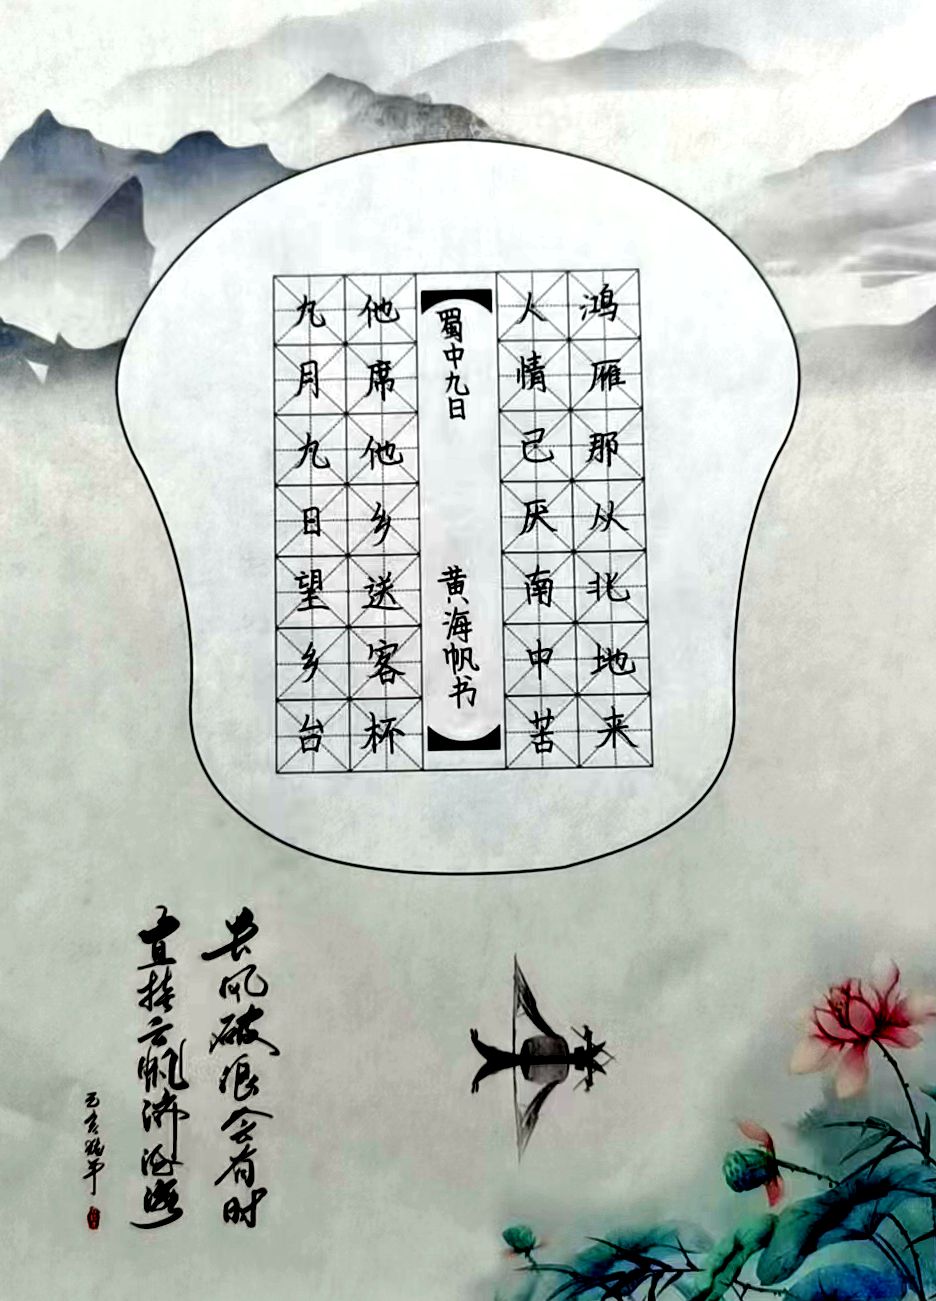 九月九日望乡台
他席他乡送客杯
蜀中九日
黄海帆书
人情已厌南中苦
鸿雁那从北地来
长风破浪会有时
直挂云帆济沧海
己亥